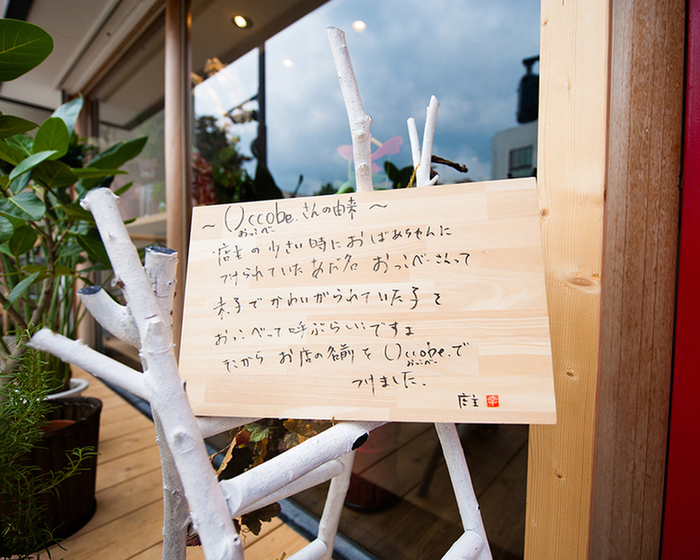 ～ Occobe. さんの由来 ～
おっこべー
・店主の少さい時におばあちゃんに
つけられていたあだ名 おっこべーさんって
末子でかわいがられていた子を
おっこべって呼ぶらしいですよ
だから お店の名前を Occobe.で
おっこべー
つけました.
店主 幸